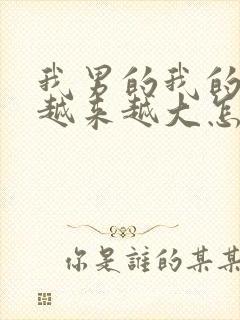 我男的我的
越来越大怎
你是誰的某某